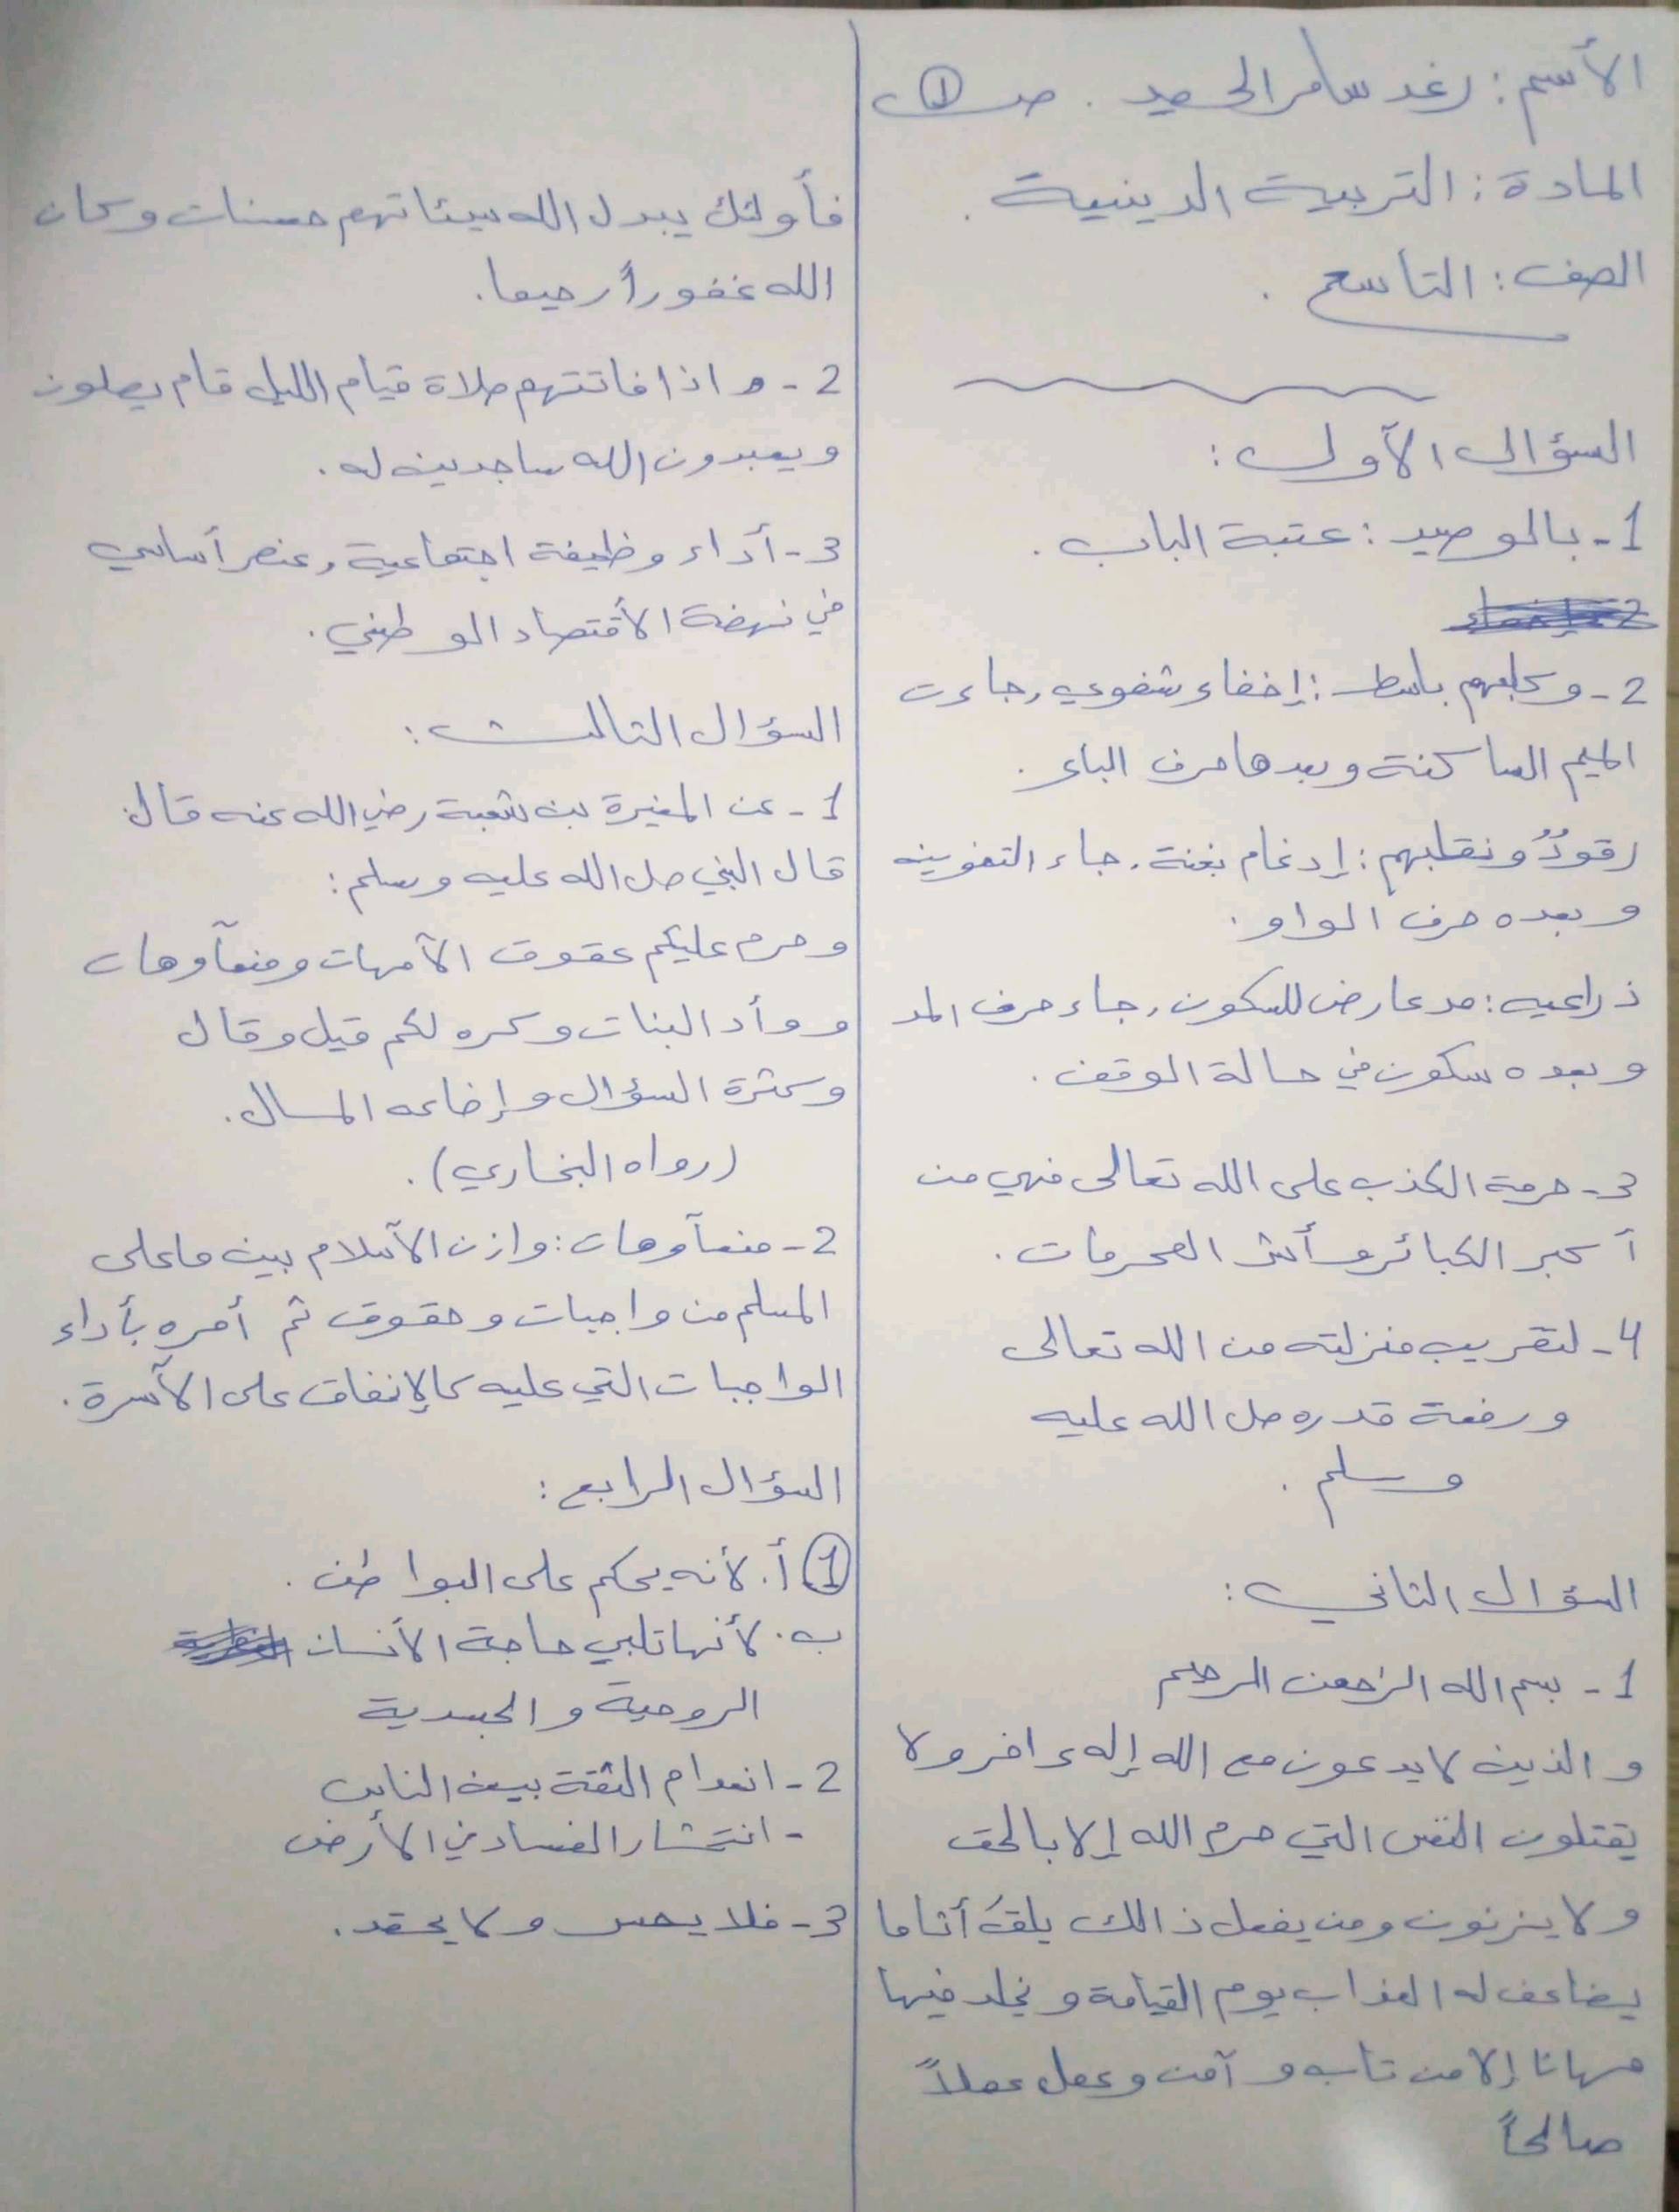 الأسم : رغد سامر الحميد . صـ ①
المادة : التربية الدينية .
الصف : التاسع .
السؤال الأول :
1- بالوصيد : عتبة الباب .
2- وكلبهم باسط : إخفاء شفوي , جاءت
الميم الساكنة وبعدها حرف الباء .
رقودٌ ونقلبهم : إدغام بغنة . جاء التنوين
وبعده حرف الواو .
ذراعيه : مد عارض للسكون , جاء حرف المد
وبعده سكون في حالة الوقف .
3- حرمة الكذب على الله تعالى فهي من
أكبر الكبائر وأشد المحرمات .
4- لتقريب منزلته من الله تعالى
ورفعة قدره صل الله عليه
وسلم .
السؤال الثاني :
1- بسم الله الرحمن الرحيم
والذين لا يدعون مع الله إله ءاخر ولا
يقتلون النفس التي حرم الله إلا بالحق
ولا يزنون ومن يفعل ذالك يلقَ أثاما
يضاعف له العذاب يوم القيامة ويخلد فيها
مهانا إلا من تاب و آمن وعمل عملاً
صالحاً
فأولئك يبدل الله سيئاتهم حسنات وكان
الله غفوراً رحيما .
2- و اذا فاتتهم صلاة قيام الليل قام يصلون
ويعبدون الله ساجدين له .
3- أداء وظيفة اجتماعية , عنصر أساسي
في نهضة الأقتصاد الوطني .
السؤال الثالث :
1- عن المغيرة بن شعبة رضي الله عنه قال :
قال النبي صل الله عليه وسلم :
وحرم عليكم عقوق الأمهات ومنعاً وهات
ووأد البنات وكره لكم قيل وقال
وكثرة السؤال وإضاعه المال .
(رواه البخاري) .
2- منعاً وهات : وازن الأسلام بين ما على
المسلم من واجبات وحقوق ثم أمره بأداء
الواجبات التي عليه كالإنفاق على الأسرة .
السؤال الرابع :
① أ. لأنه يحكم على البواطن .
ب. لأنها تلبي حاجة الأنسان
الروحية والجسدية
2- انعدام الثقة بين الناس
- انتشار الفساد في الأرض
3- فلا يحسد ولا يحقد .